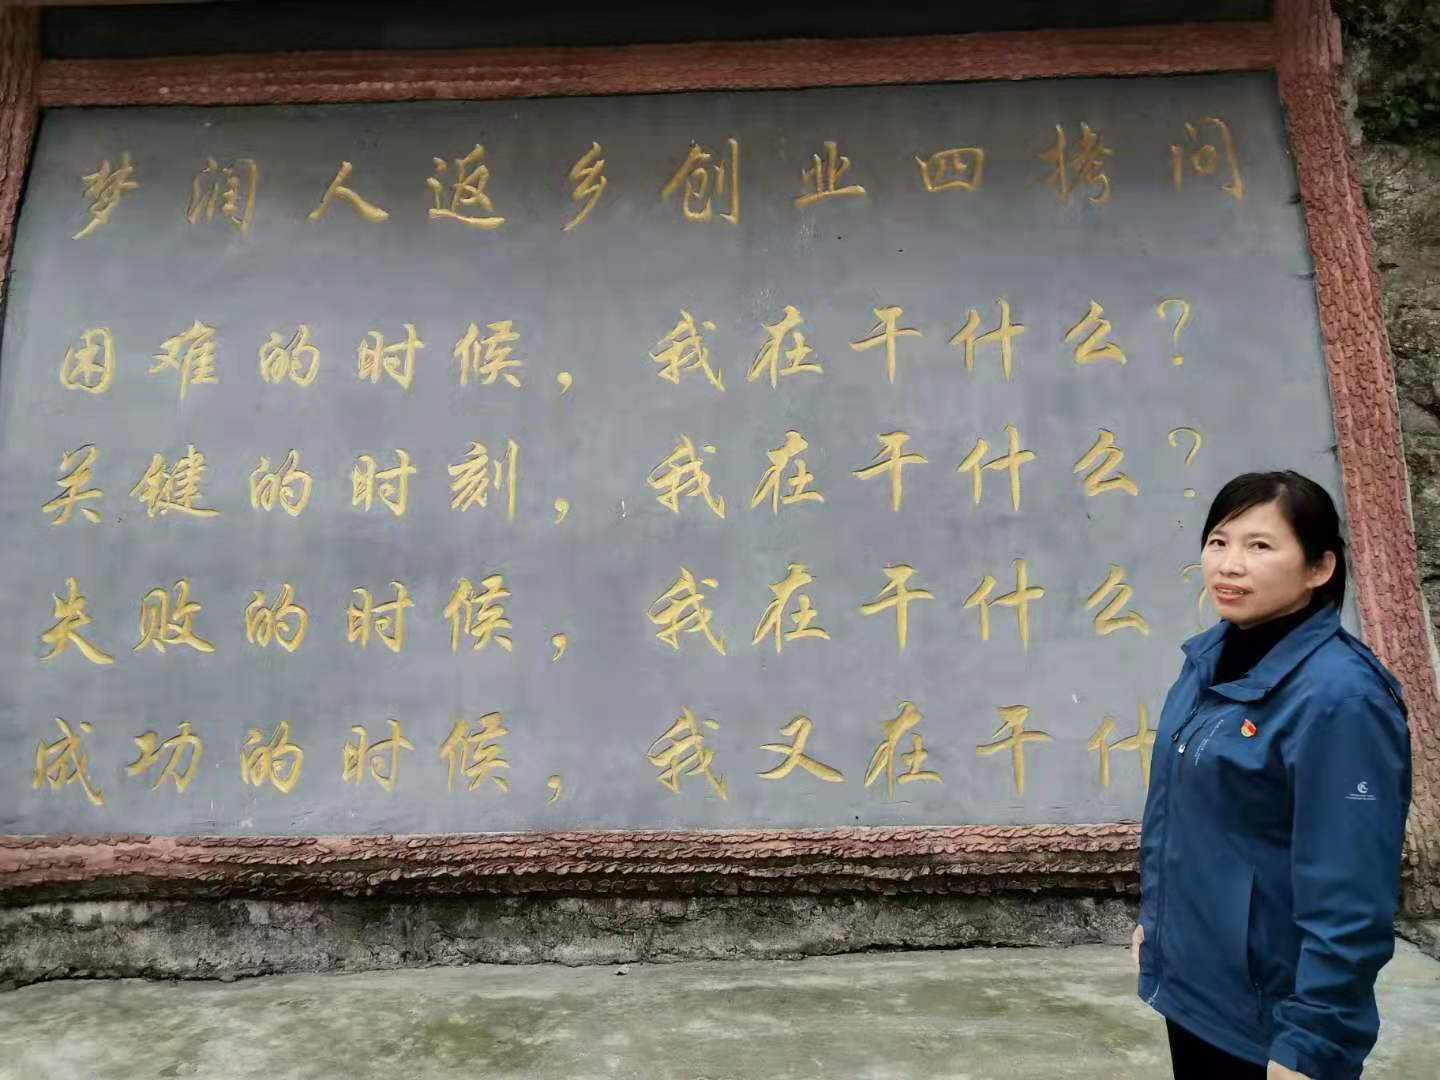 梦润人返乡创业四拷问
困难的时候，我在干什么？
关键的时刻，我在干什么？
失败的时候，我在干什么？
成功的时候，我又在干什